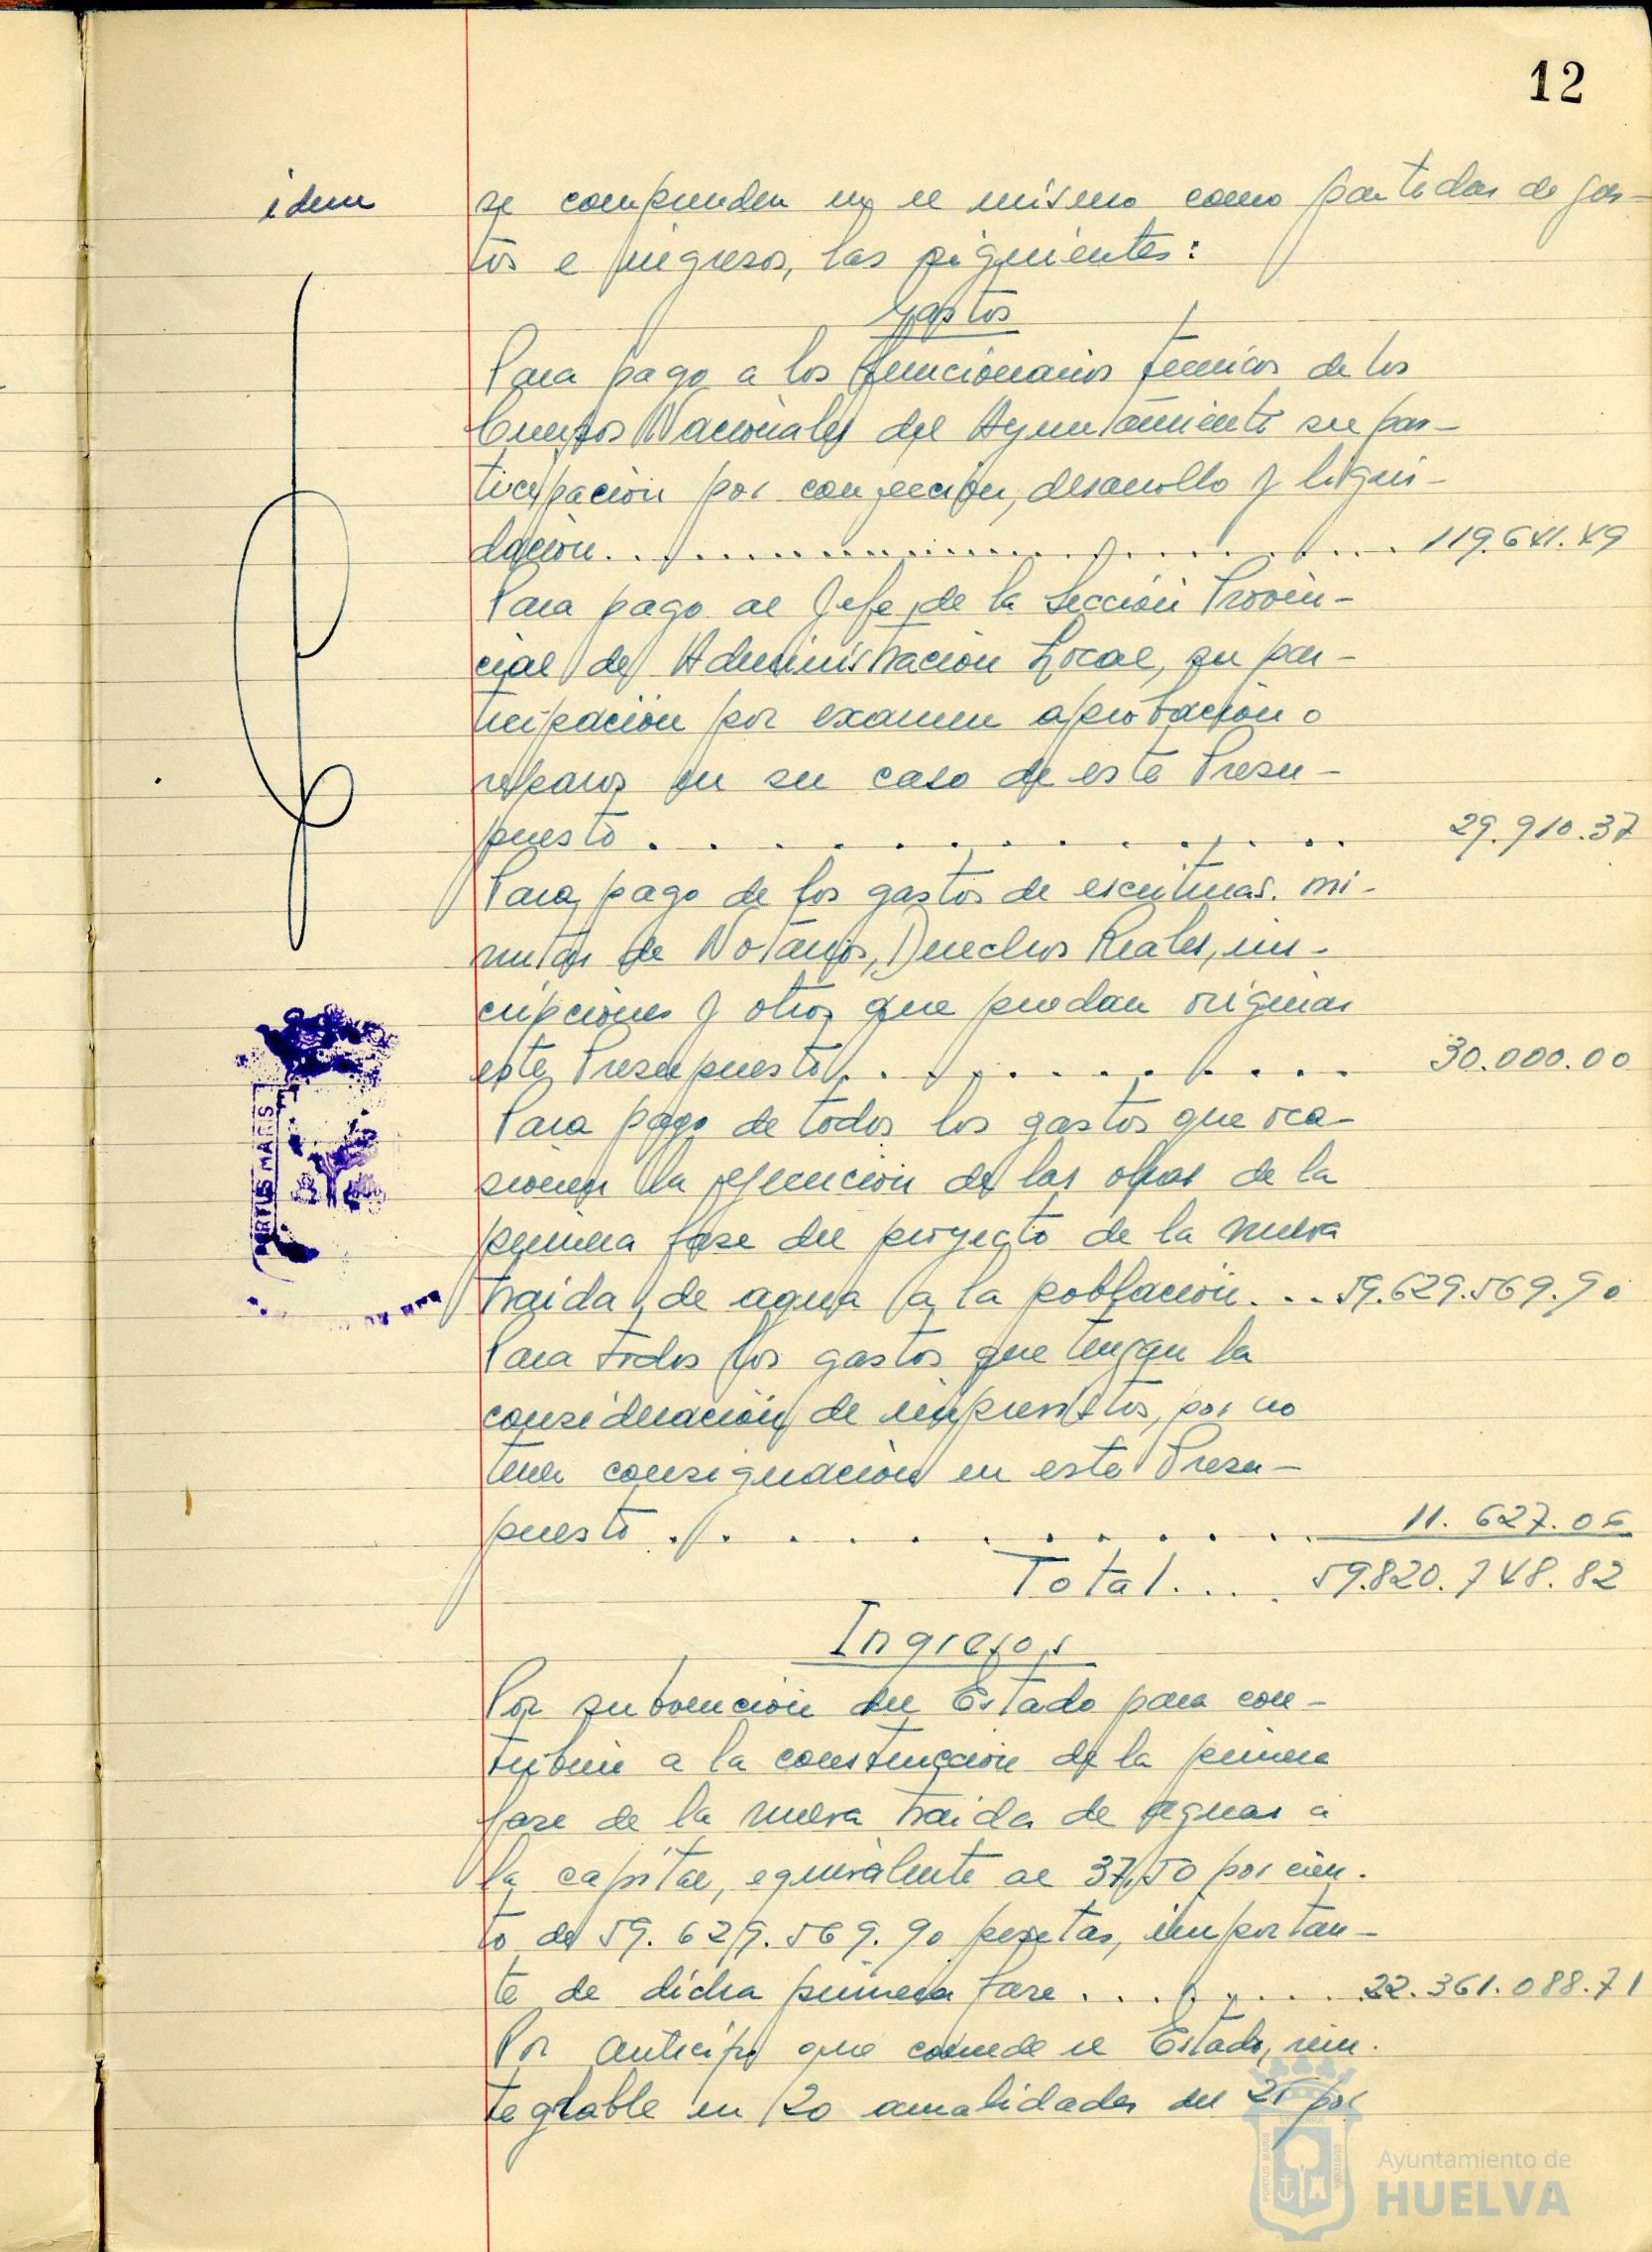 12
idem
se comprenden en el mismo como partidas de gas-
tos e ingresos, las siguientes:
Gastos
Para pago a los funcionarios tecnicos de los
Cuerpos Nacionales del Ayuntamiento su par-
ticipación por confección, desarrollo y liqui-
dación. . . . . . . . . . 119.641.49
Para pago al Jefe de la Sección Provin-
cial de Administración Local, su par-
ticipación por examen aprobación o
reparos en su caso de este Presu-
puesto . . . . . . . . . . 29.910.37
Para pago de los gastos de escrituras. mi-
nutas de Notarios, Derechos Reales, ins-
cripciones y otros que puedan originar
este Presupuesto . . . . . . . . . . 30.000.00
Para pago de todos los gastos que oca-
sionen la ejecución de las obras de la
primera fase del proyecto de la nueva
traida de agua a la población. . . 59.629.569.90
Para todos los gastos que tengan la
consideración de imprevistos, por no
tener consignación en este Presu-
puesto . . . . . . . . . . 11.627.06
Total. . . . 59.820.748.82
Ingresos
Por subvención del Estado para con-
tribuir a la construcción de la primera
fase de la nueva traida de aguas a
la capital, equivalente al 37,50 por cien-
to de 59.629.569.90 pesetas, importan-
te de dicha primera fase . . . . . . . 22.361.088.71
Por anticipo que concede el Estado, rein-
tegrable en 20 anualidades del 25 por
PORTUS MARIS
Ayuntamiento de
HUELVA